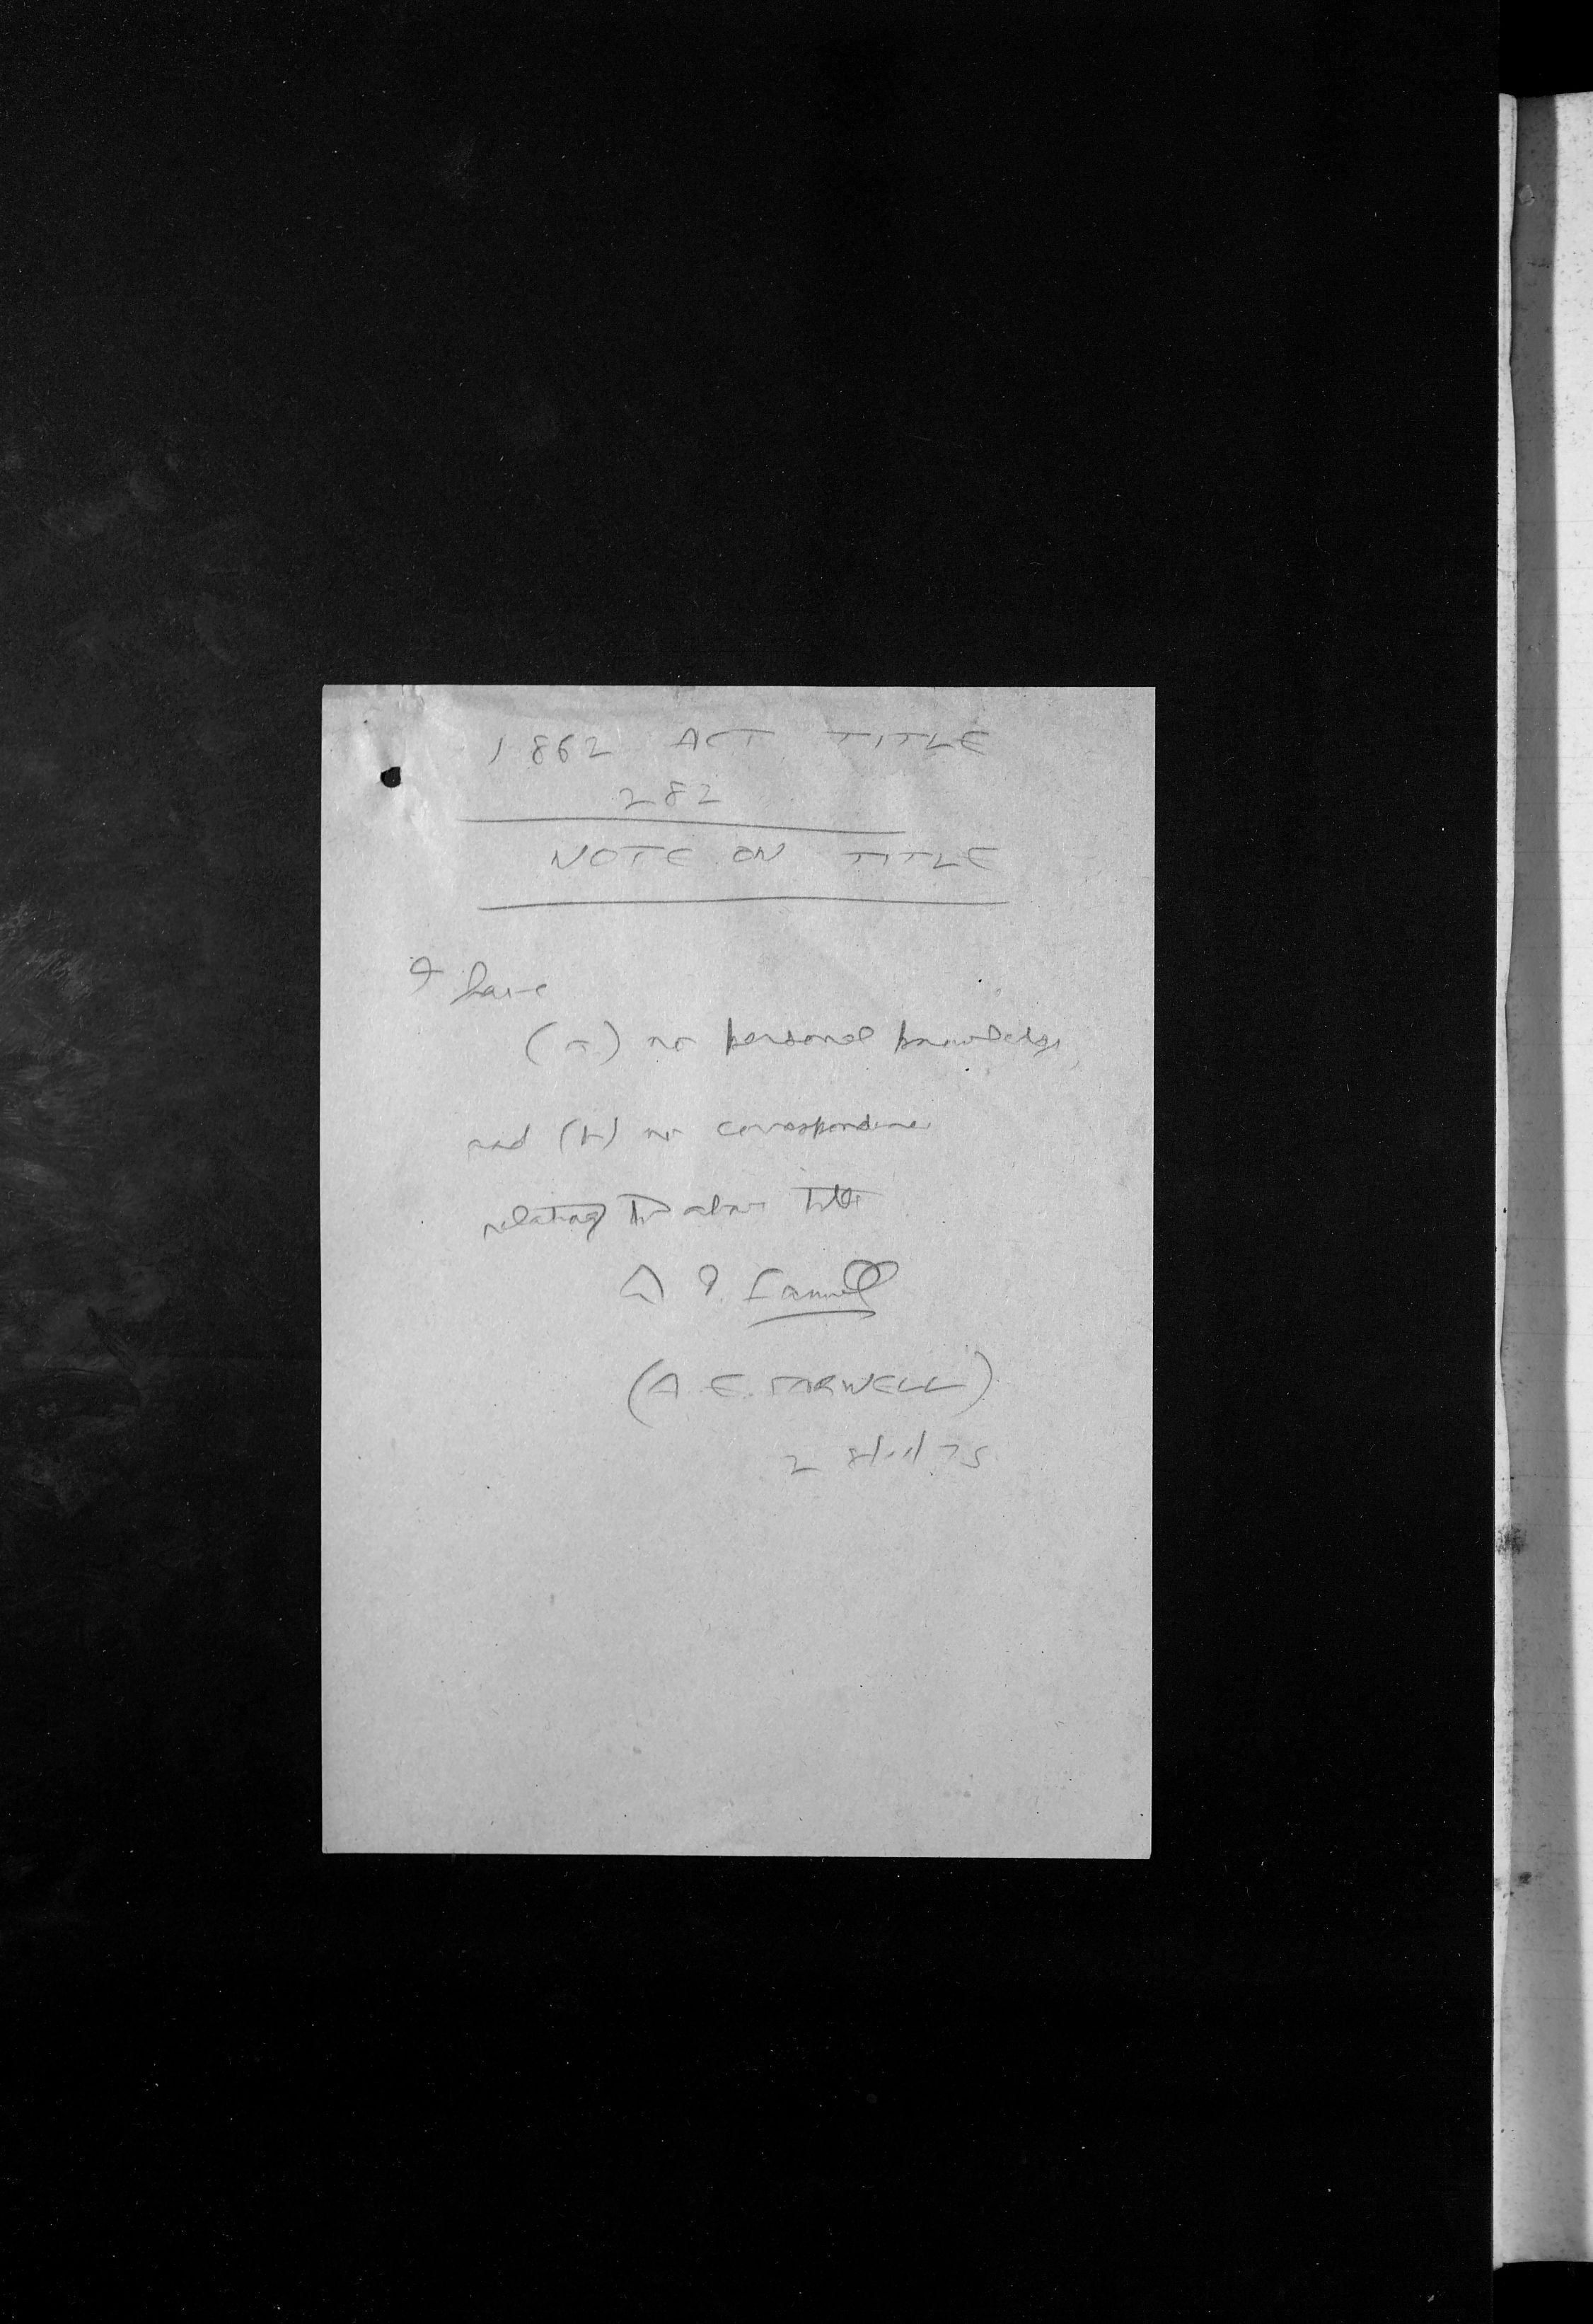 1862 ACT TITLE
282
NOTE ON TITLE
I have
(a) no personal knowledge
and (b) no correspondence
relating to above title
A E Farwell
(A. E. FARWELL)